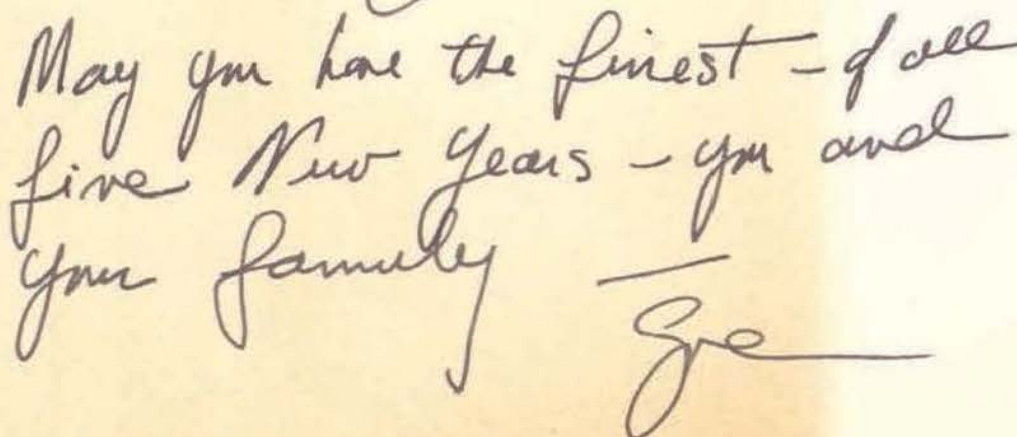 May you have the finest - of all
fine New Years - you and
your family —